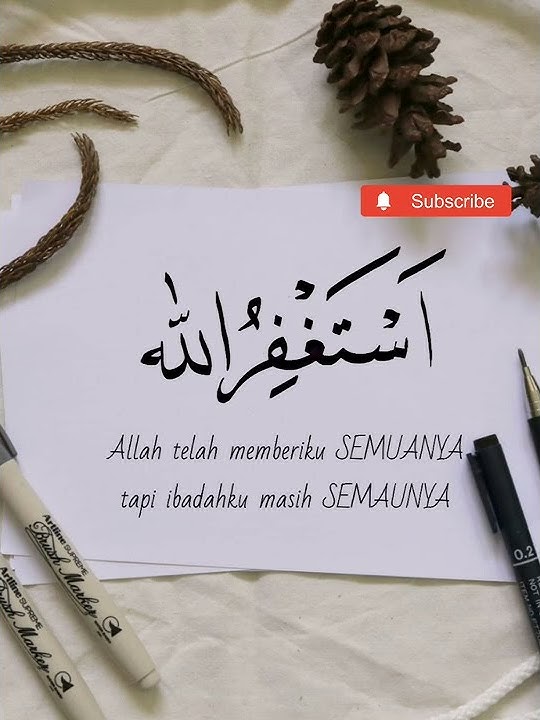 Subscribe
اَسْتَغْفِرُ اللّٰه
Allah telah memberiku SEMUANYA
tapi ibadahku masih SEMAUNYA
0.2
NOT IN
Artline SUPREME
Brush Marker
Artline SUPREME
Brush Marker